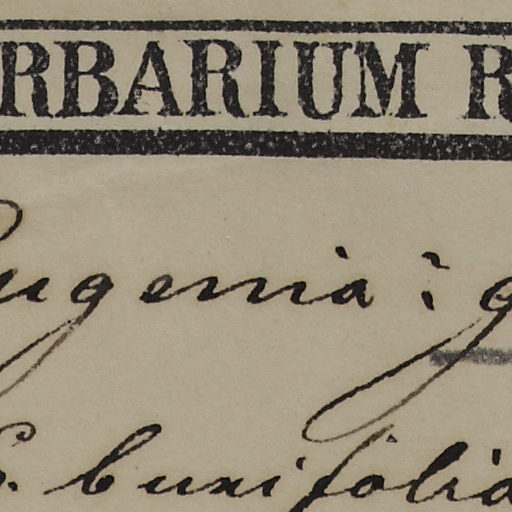 RBARIUM R
Eugenia ? g
E. buxifolia